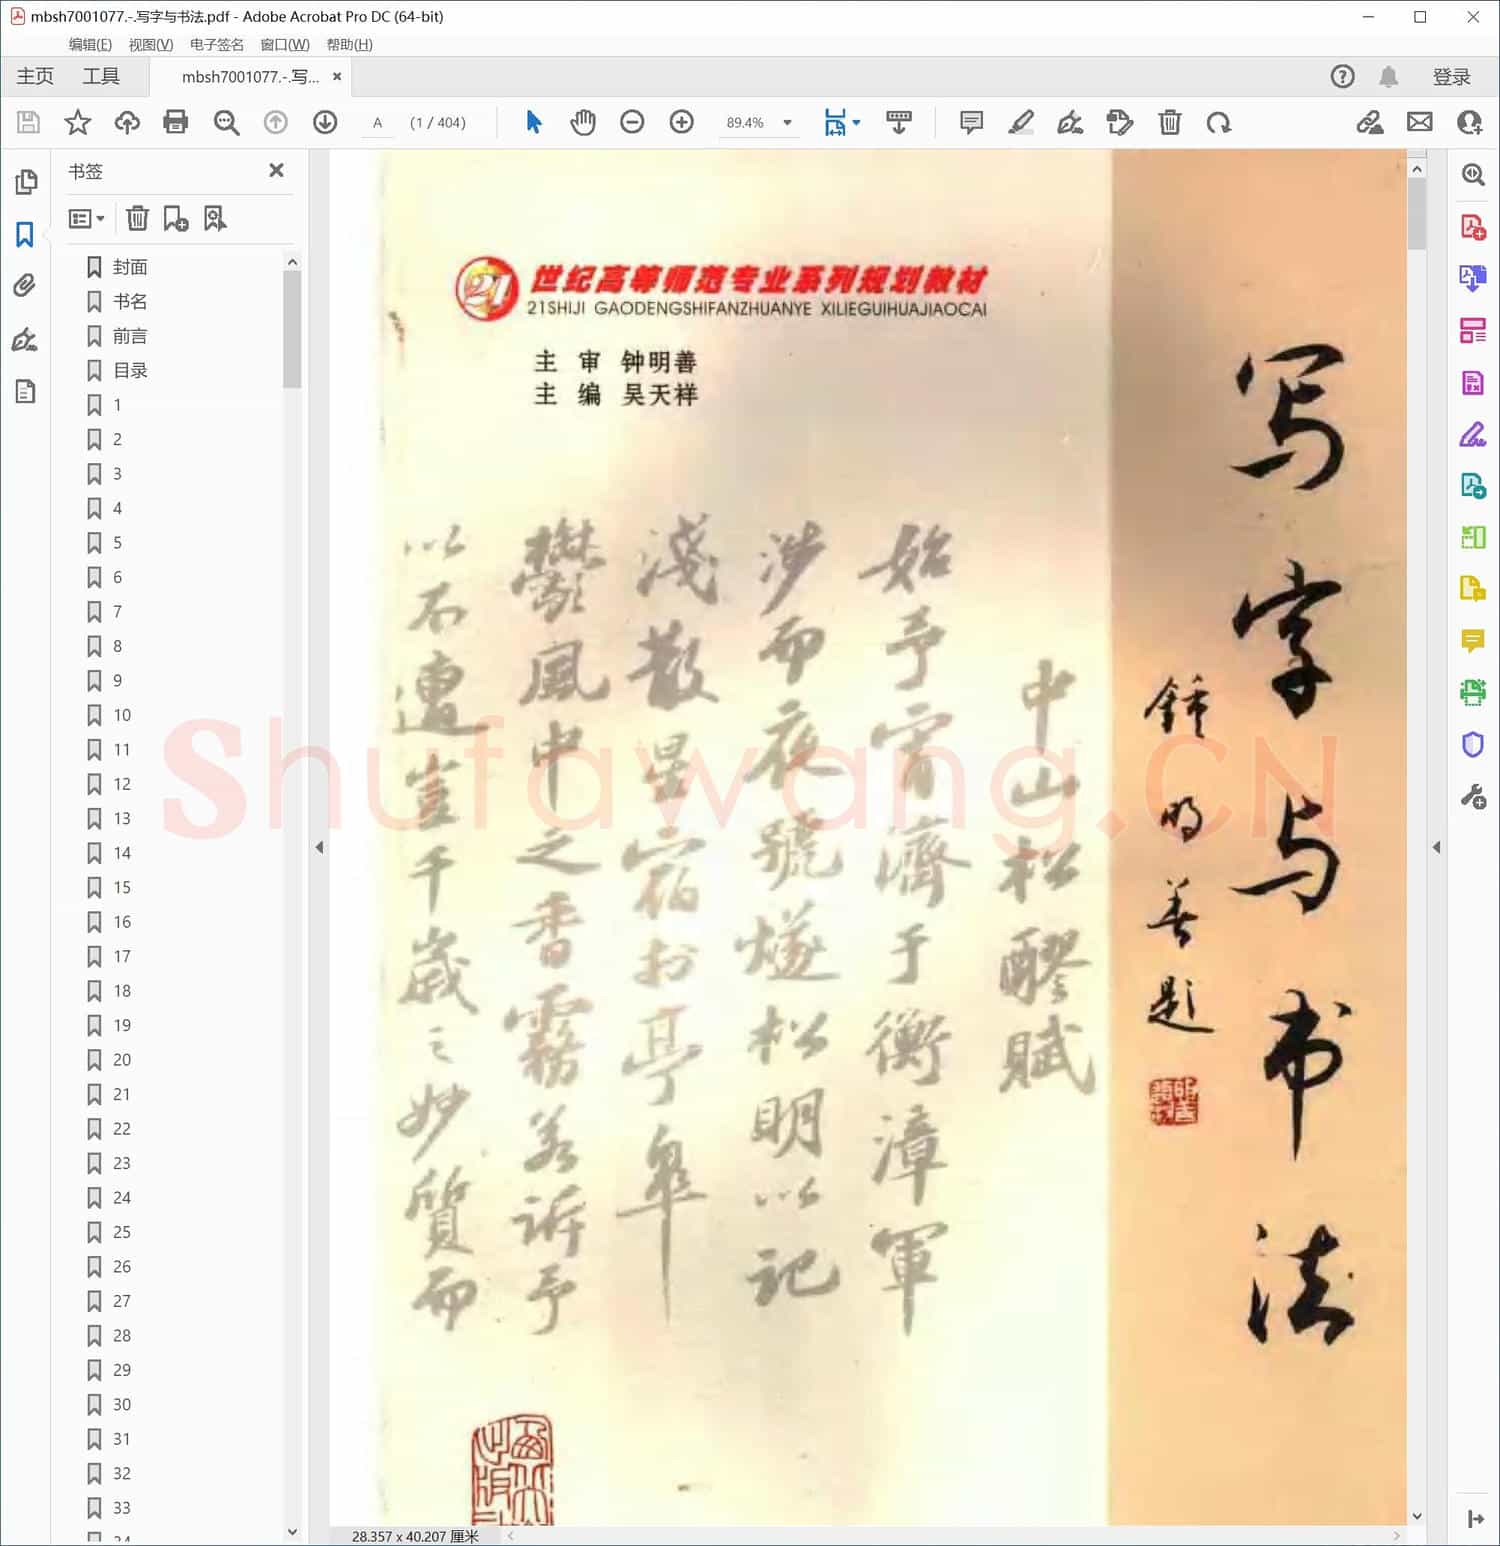 mbsh7001077.-.写字与书法.pdf - Adobe Acrobat Pro DC (64-bit)
编辑(E) 视图(V) 电子签名 窗口(W) 帮助(H)
主页 工具 mbsh7001077.-.写... × 登录
A (1 / 404) 89.4%
书签
封面
书名
前言
目录
1
2
3
4
5
6
7
8
9
10
11
12
13
14
15
16
17
18
19
20
21
22
23
24
25
26
27
28
29
30
31
32
33
34
21世纪高等师范专业系列规划教材
21SHIJI GAODENGSHIFANZHUANYE XILIEGUIHUAJIAOCAI
主 审 钟明善
主 编 吴天祥
写字与书法
鍾明善题
中山松醪賦
始予宵濟于衡漳軍
涉而夜號燧松明以記
淺散星宿於亭皐
鬱風中之香霧若訴予
以不遭豈千歲之妙質而
Shufawang.CN
28.357 x 40.207 厘米